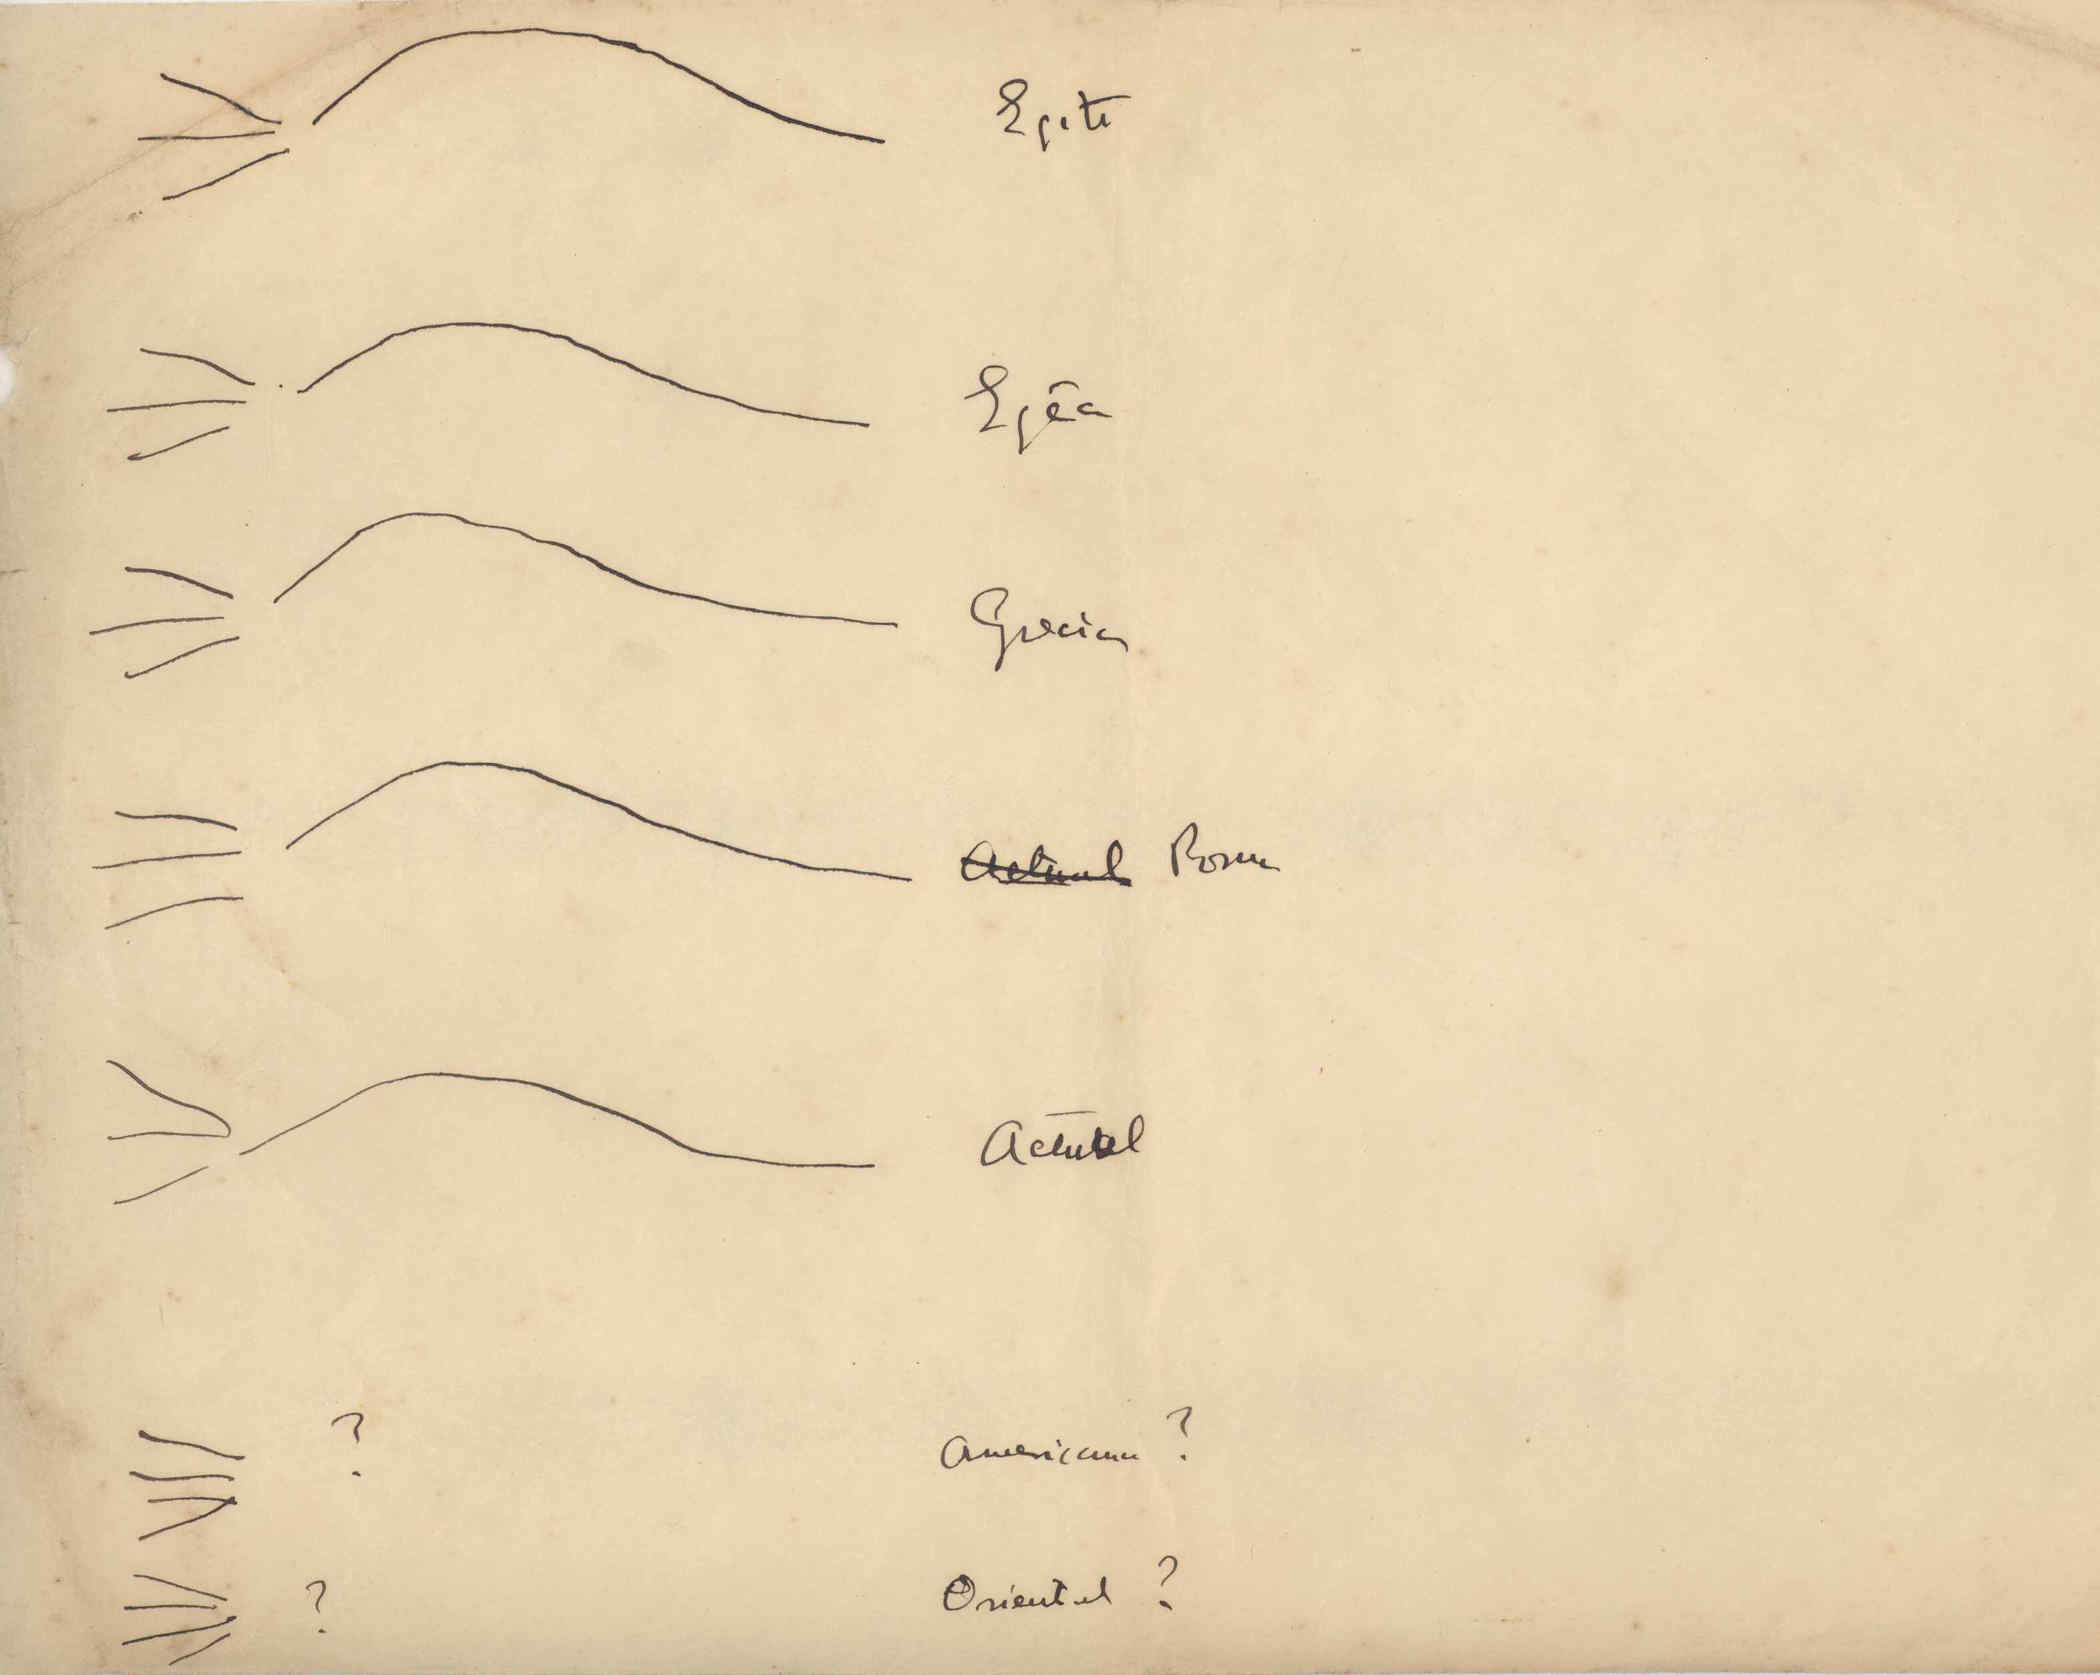 Egito
Egêa
Grecia
Actual Roma
Actual
? Americana ?
? Oriental ?